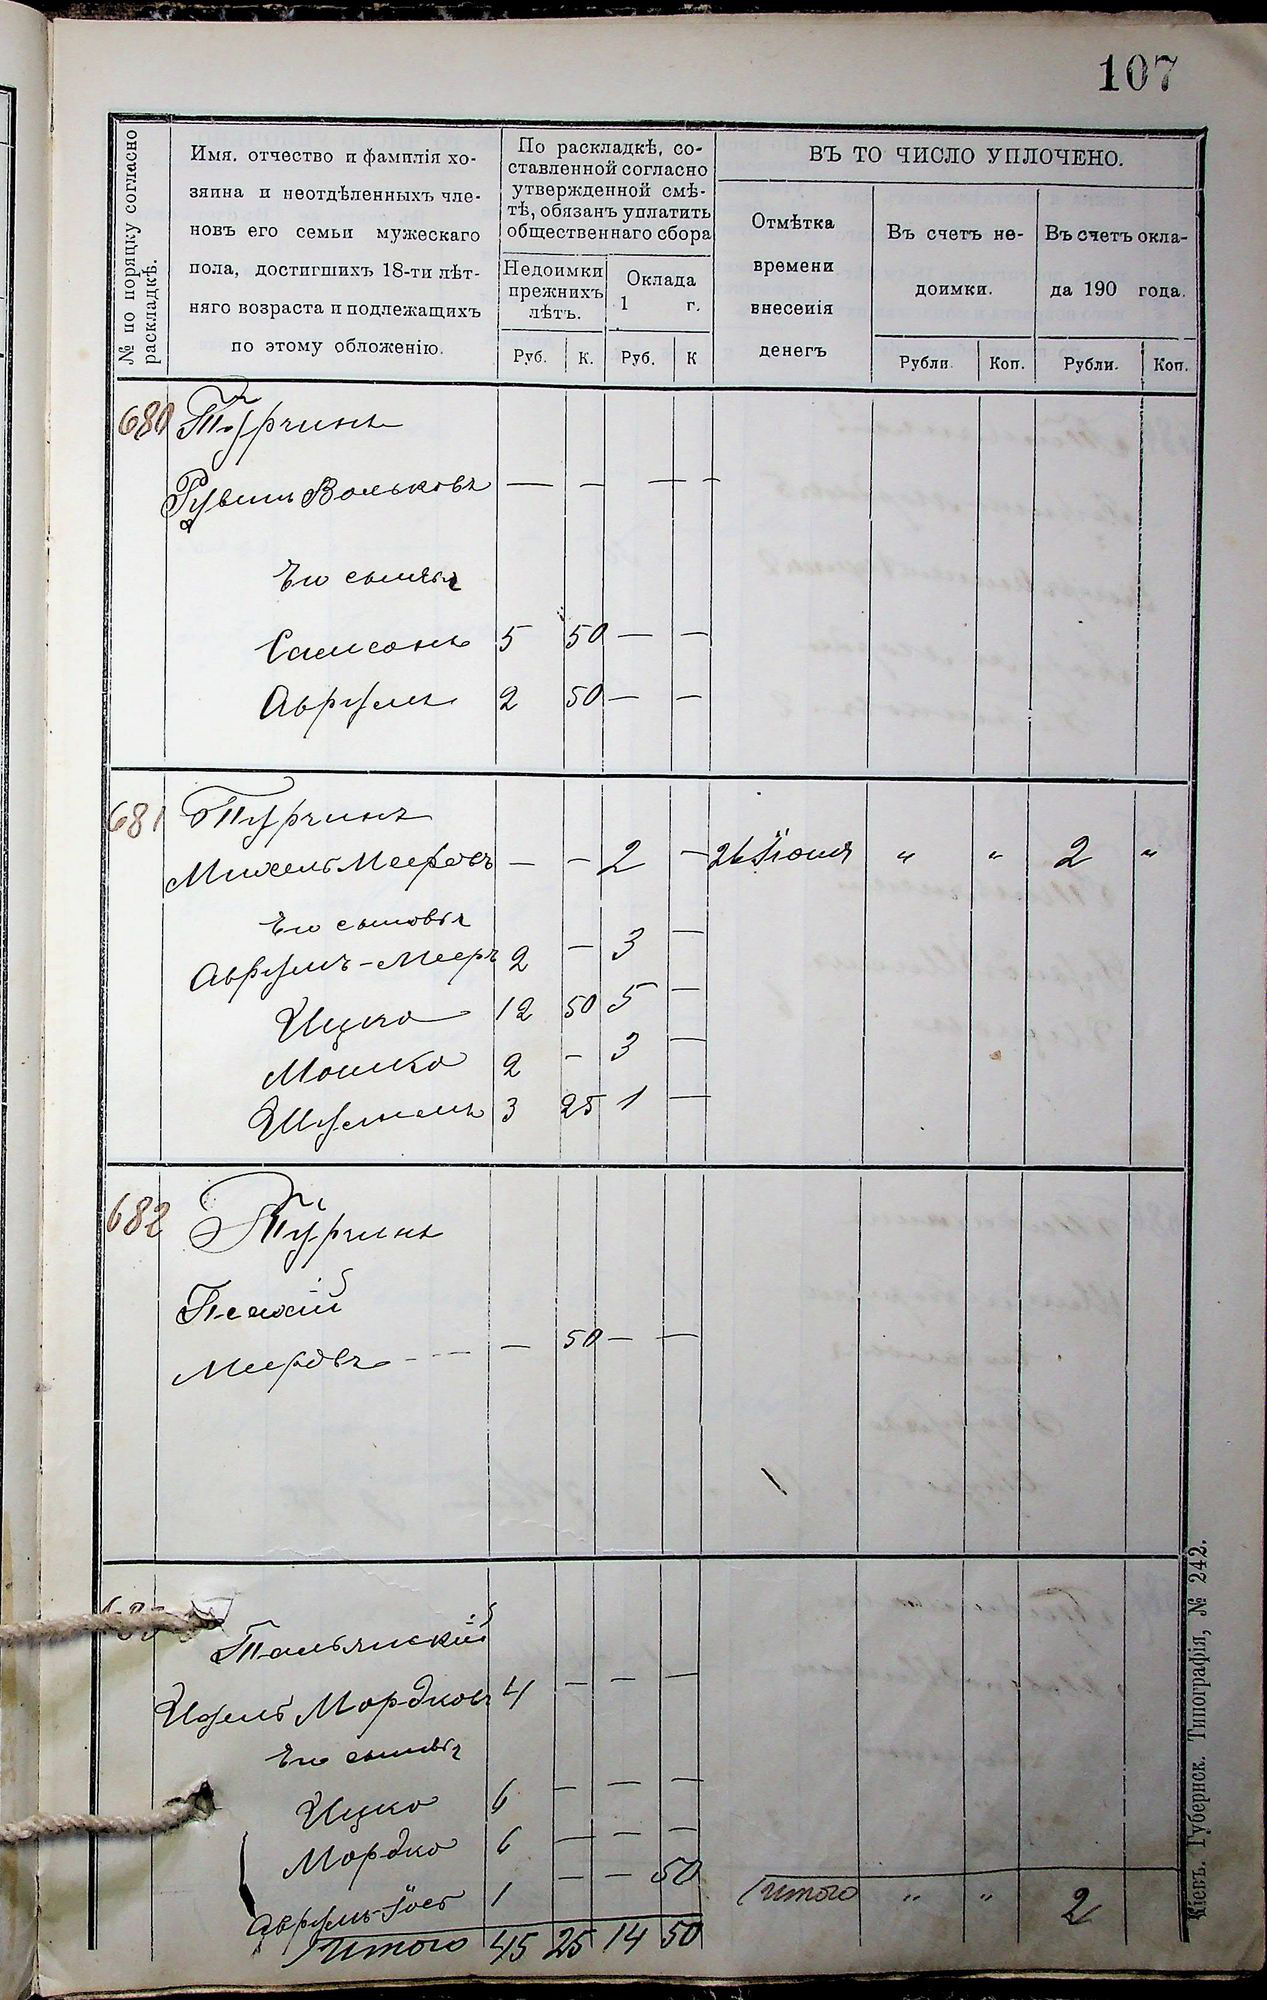 107
№ по порядку согласно
раскладкѣ.
Имя, отчество и фамилія хо-
зяина и неотдѣленныхъ чле-
новъ его семьи мужескаго
пола, достигшихъ 18-ти лѣт-
няго возраста и подлежащихъ
по этому обложенію.
По раскладкѣ, со-
ставленной согласно
утвержденной смѣ-
тѣ, обязанъ уплатить
общественнаго сбора
Недоимки
прежнихъ
лѣтъ.
Оклада
1 г.
Руб. К. Руб. К
ВЪ ТО ЧИСЛО УПЛОЧЕНО.
Отмѣтка
времени
внесенія
денегъ
Въ счетъ не-
доимки.
Рубли. Коп.
Въ счетъ окла-
да 190 года.
Рубли. Коп.
680 Турчинъ
Рувинъ Вольковъ — — — —
Его сыновья
Самсонъ 5 50 — —
Аврумъ 2 50 — —
681 Турчинъ
Михель Мееровъ — — 2 — 26 Іюня " " 2 "
Его сыновья
Аврумъ-Мееръ 2 — 3 —
Ицко 12 50 5 —
Мошко 2 — 3 —
Шулимъ 3 25 1 —
682 Турчинъ
Мееровъ — 50 — —
Тальянскій
Мордковъ 4 — — —
Его сыновья
Ицко 6 — — —
Мордко 6 — — —
Аврумъ-Іось 1 — — 50
Итого 45 25 14 50
Итого " " 2
Кіевъ. Губернск. Типографія, № 242.